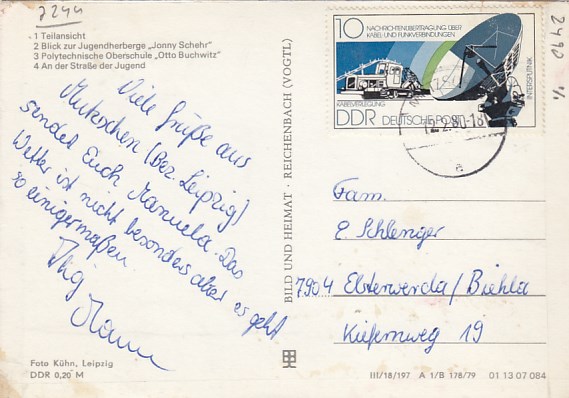 7244
2490
1 Teilansicht
2 Blick zur Jugendherberge „Jonny Schehr"
3 Polytechnische Oberschule „Otto Buchwitz"
4 An der Straße der Jugend
Viele Grüße aus
Mutzschen (Bez. Leipzig)
sendet Euch Manuela. Das
Wetter ist nicht besonders aber es geht
so einigermaßen
Foto Kühn, Leipzig
DDR 0,20 M
BILD UND HEIMAT · REICHENBACH (VOGTL)
10 NACHRICHTENÜBERTRAGUNG ÜBER
KABEL-UND FUNKVERBINDUNGEN
KABELVERLEGUNG
INTERSPUTNIK
DDR DEUTSCHE POST
2.80-18
a
Fam.
E. Schlenger
7904 Elsterwerda/Biehla
Kiefernweg 19
III/18/197 A 1/B 178/79 01 13 07 084